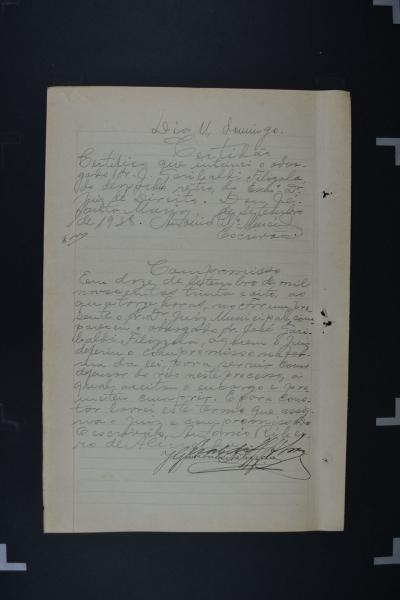 Dia 11, Domingo.
Certidão
Certifico que intimei o advo-
gado Dr. J. Garibaldi Filizola
do despacho retro, do Exmo. Dr.
Juiz de Direito. Dou fé.
de Setembro
de 1938.
Escrivão
Compromisso
Em doze, de Setembro de mil
novecentos e trinta e oito, as
quatorze horas, no Forum, pre
sente o Dr. Juiz Municipal, com
pareceu o advogado Dr. José Gari
baldi Filizzola, a quem o Juiz
deferiu o compromisso na for
ma da lei, para servir como
defensor do réo neste processo, o
qual, aceitou o encargo e pro
meteu cumprir. E para cons
tar lavrei este termo que assi
gna o Juiz e compromissado
O escrivão, Antonio Ribei
ro de